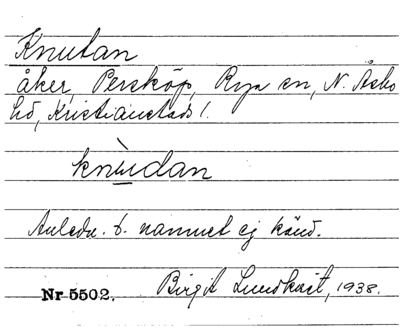 Knutan
åker, Persköp, Rya sn, N. Åsbo
hd, Kristianstads l.
knùdan
Anledn. t. namnet ej känd.
Nr 5502. Birgit Lundkvist, 1938.